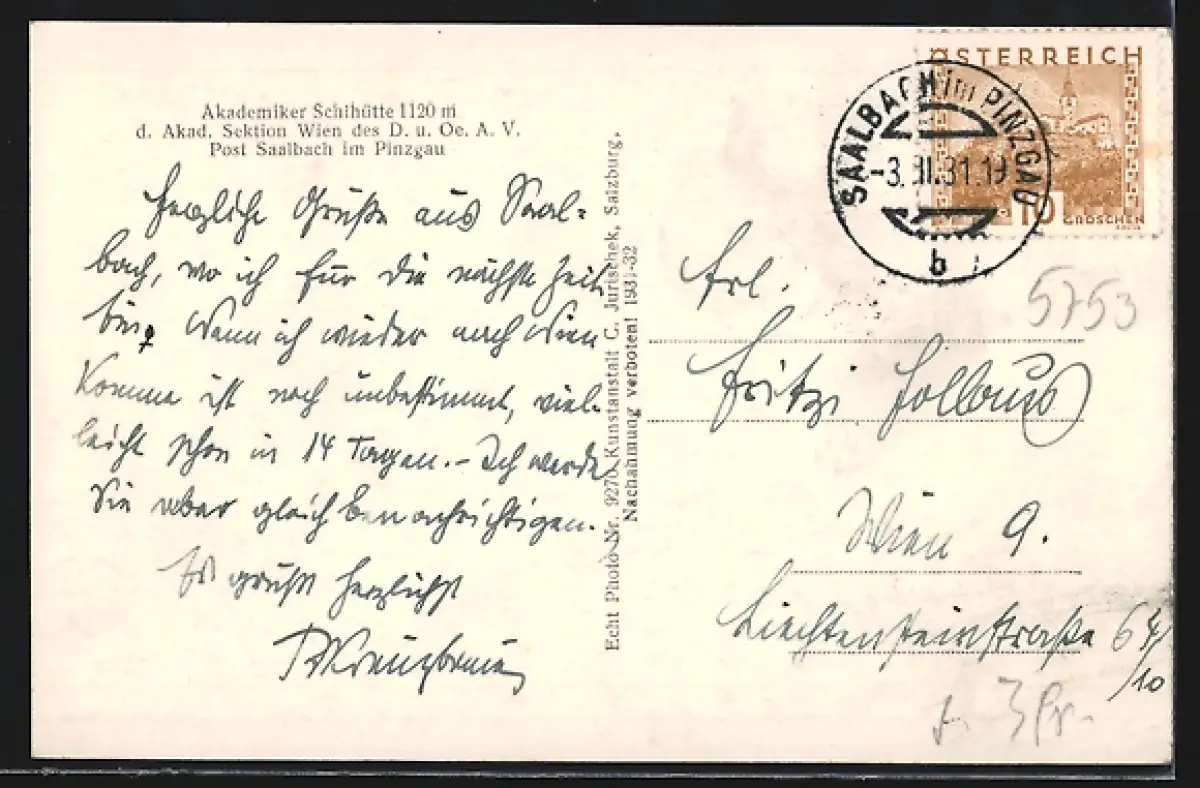 Akademiker Schihütte 1120 m
d. Akad. Sektion Wien des D. u. Oe. A. V.
Post Saalbach im Pinzgau
Herzliche Grüße aus Saal-
bach, wo ich für die nächste Zeit
bin. Wann ich wieder nach Wien
komme ist noch unbestimmt, viel-
leicht schon in 14 Tagen. - Ich werde
Sie aber gleich benachrichtigen.
Es grüßt herzlichst
Echt Photo Nr. 9270 Kunstanstalt C. Jurischek, Salzburg.
Nachahmung verboten! 1931-32
ÖSTERREICH
10 GROSCHEN
SAALBACH im PINZGAU
-3. III. 31. 19
b
5753
Frl.
Fritzi
Wien 9.
Liechtensteinstraße 64
/10